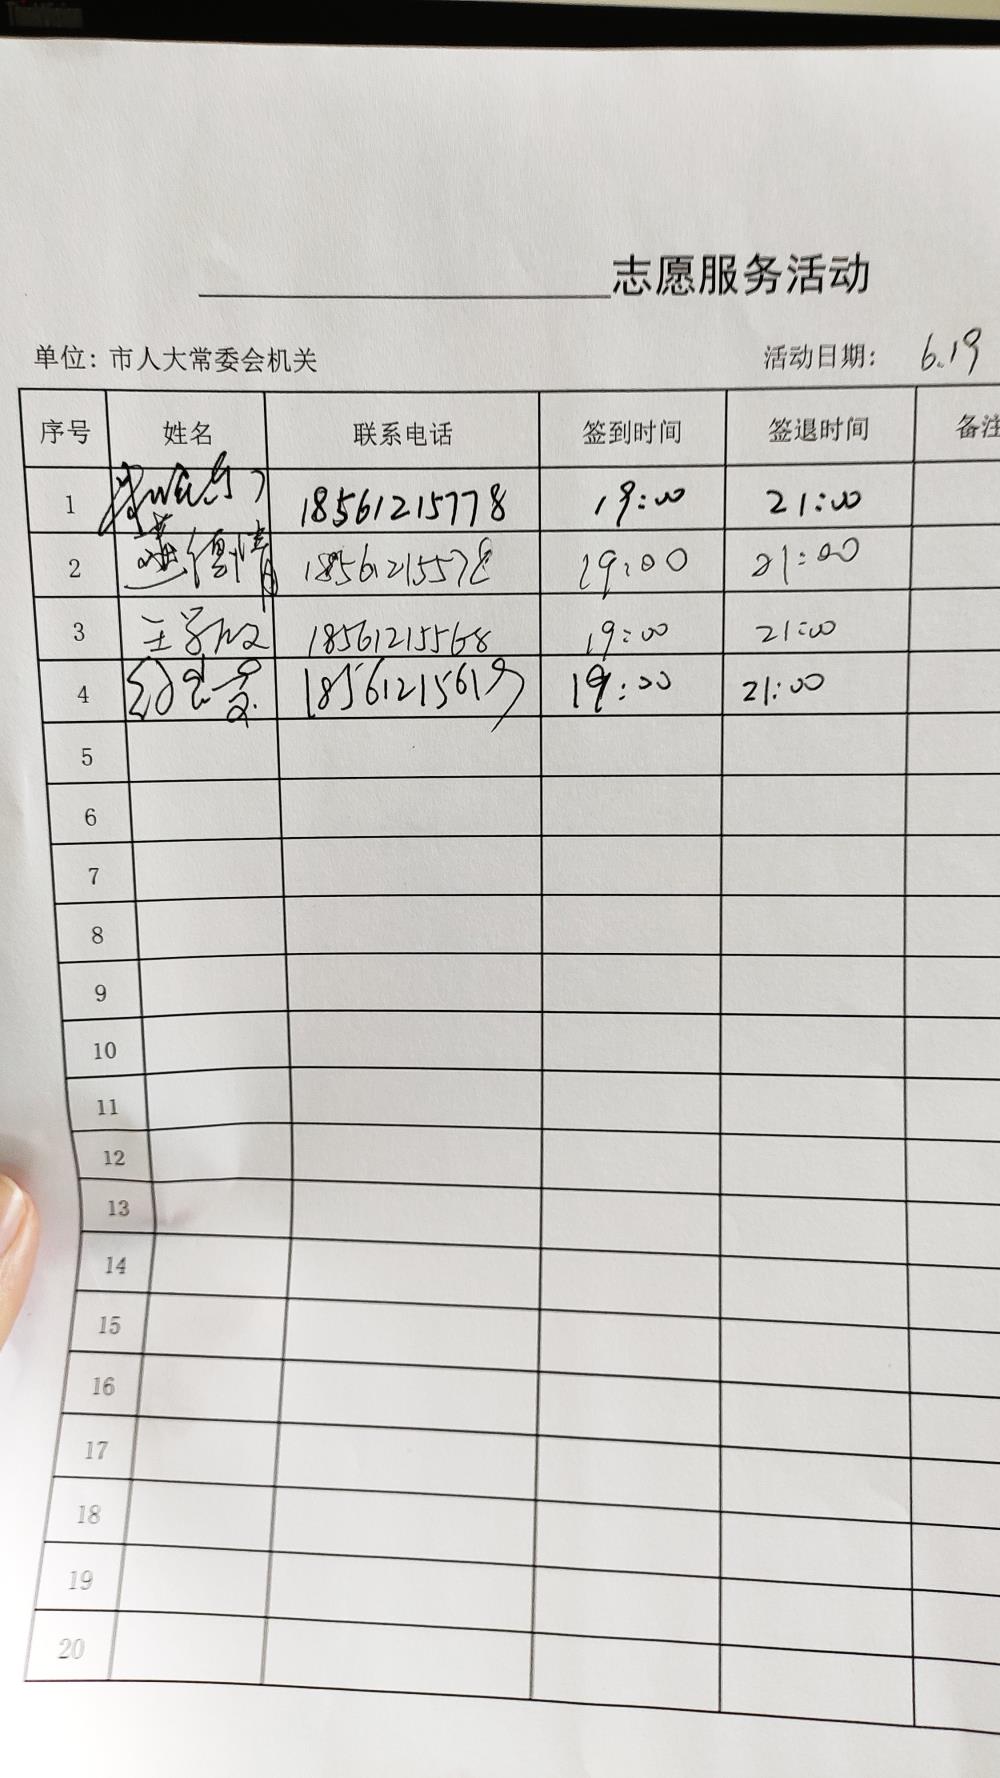 ThinkVision
志愿服务活动
单位：市人大常委会机关 活动日期： 6.19
序号 姓名 联系电话 签到时间 签退时间 备注
1 18561215778 19:00 21:00
2 18561215578 19:00 21:00
3 18561215568 19:00 21:00
4 18561215619 19:00 21:00
5
6
7
8
9
10
11
12
13
14
15
16
17
18
19
20